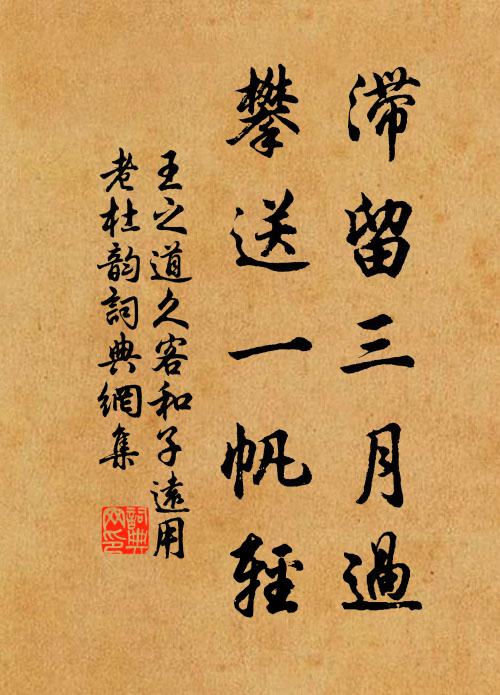 滞留三月過
攀送一帆輕
王之道久客和子遠用
老杜韵詞典網集